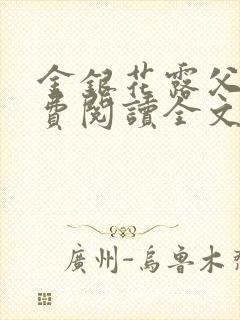 金銀花露父
費閱讀全文
廣州-烏魯木齊